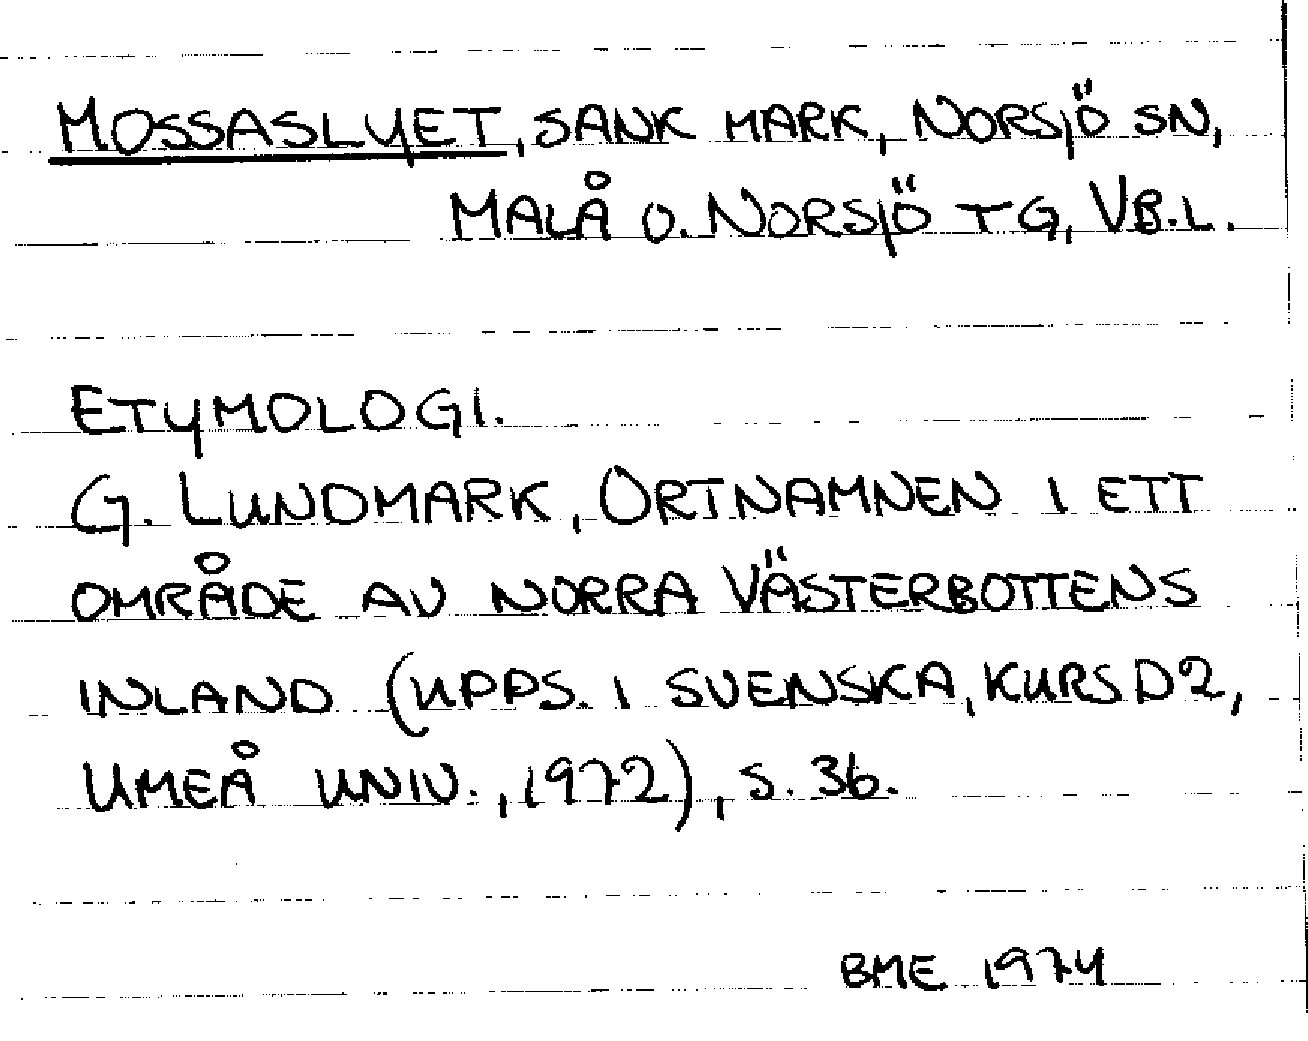 MOSSASLYET, SANK MARK, NORSJÖ SN,
MALÅ O. NORSJÖ TG, VB.L.
ETYMOLOGI.
G. LUNDMARK, ORTNAMNEN I ETT
OMRÅDE AV NORRA VÄSTERBOTTENS
INLAND (UPPS. I SVENSKA, KURS D2,
UMEÅ UNIV., 1972), S. 36.
BME 1974